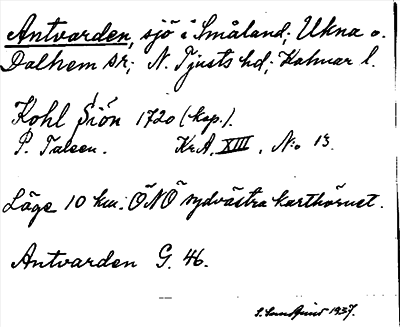 Antvarden, sjö i Småland; Ukna o.
Dalhem sr; N. Tjusts hd; Kalmar l.
Kohl Siön 1720 (kop.).
P. Talsen. KrA. XIII. No 13.
Läge 10 km. ÖNÖ sydvästra karthörnet.
Antvarden G. 46.
1937.